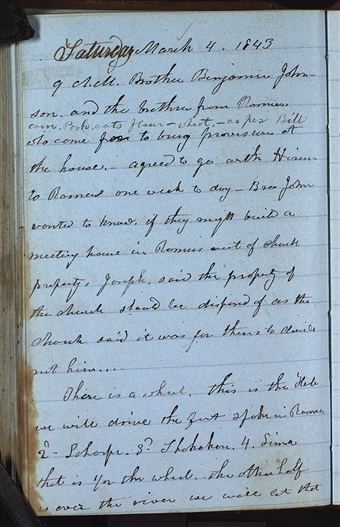 Saturday March 4. 1843
9 A.M. Brother Benjamin John-
son. and the brother from Ramus
corn, Pork, oats flour - wheat, - as per Bill
who come to bring provision at
the house. - agreed to go with Hiram
to Ramus one week to day - Bro John
wanted to know. if they might build a
meeting house in Ramus out of church
property, Joseph. said the property of
the church should be disposed of as the
church said it was for them to decide
not him...
There is a wheel, this is the Hub
we will drive the first spoke in Ramus
2d - Shokoquon 4. Lima
that is 1/2 the wheel. the other half
is over the river we will let that